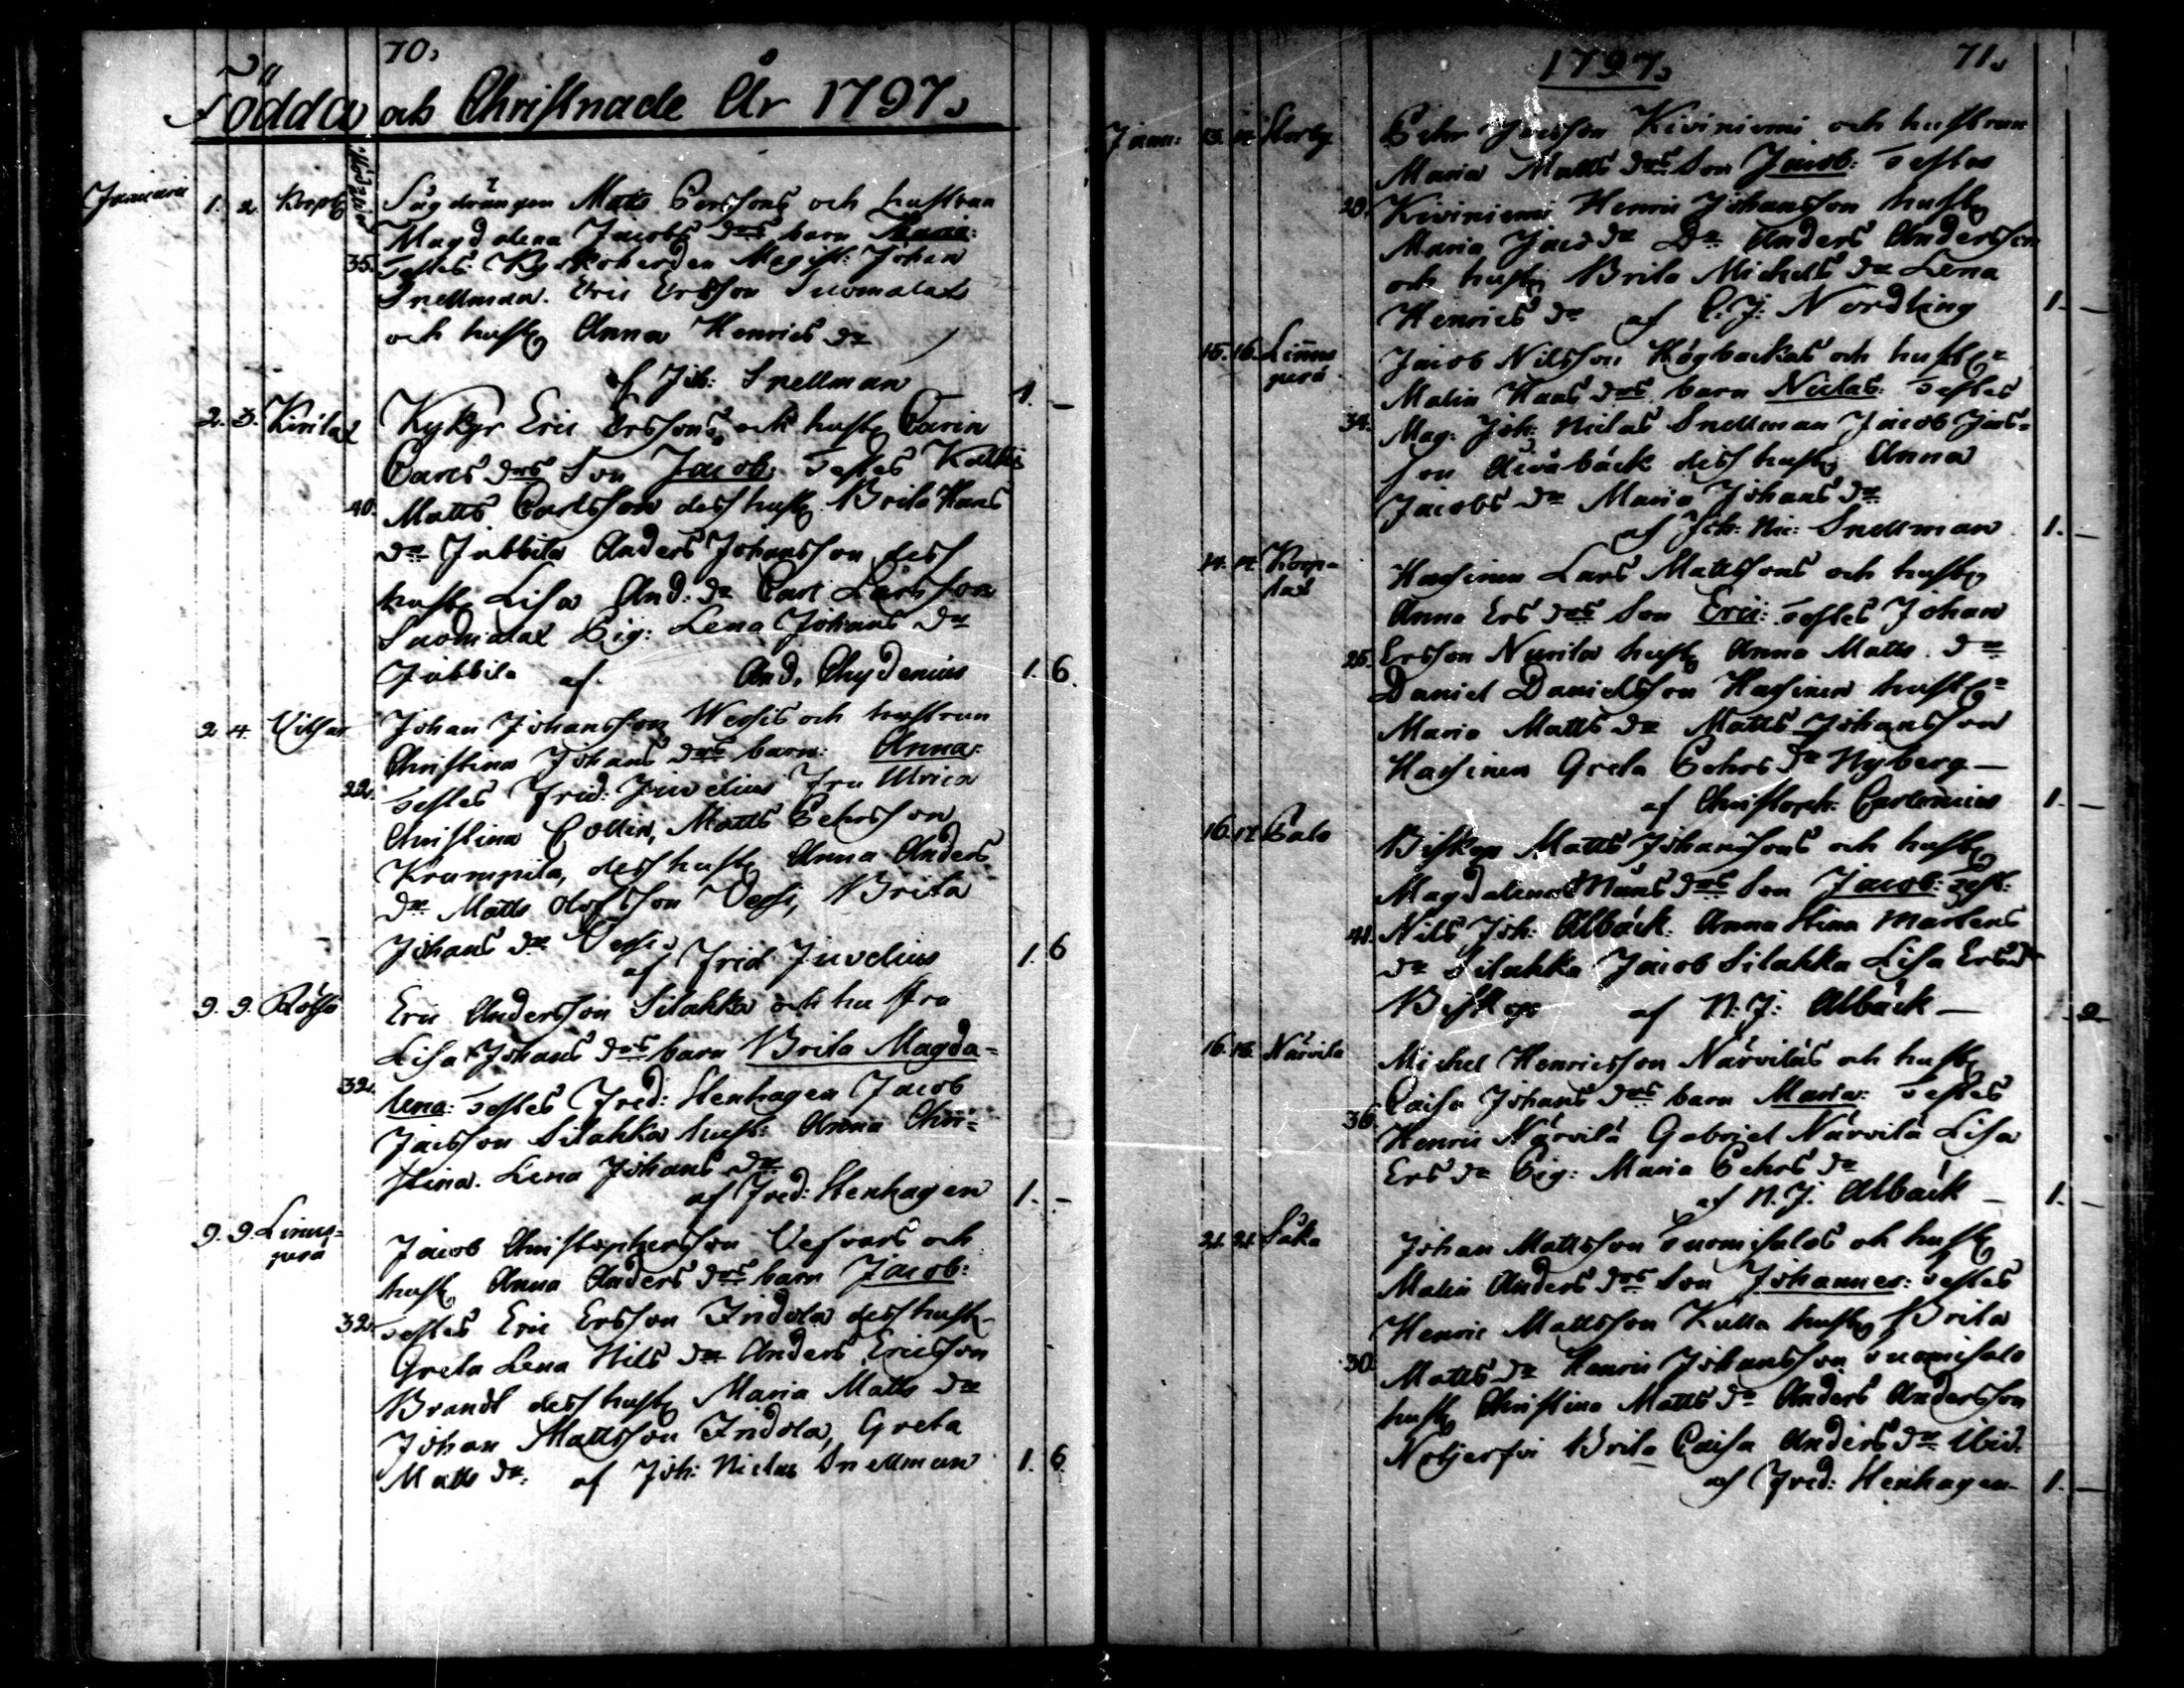 70.
Födda och Christnade År 1797.
Januarii 1. 2. Korpl:
Sågdrängen Matts Perssons och hustrun
Magdalena Jacobs drs barn Maria:
35. testes: Kyrkoherden Magist: Johan
Snellman. Eric Ersson Suomalax
och hust: Anna Henrics dr
af Joh: Snellman 1. —
2. 3. Kirilax Kykyr Eric Erssons och hust: Carin
Carls drs Son Jacob: testes Kalkis
40. Matts Carlsson dess hust: Brita Hans
dr Jubbila Anders Johansson dess
hust: Lisa And: dr Carl Larsson
Suomalax Pig: Lena Johans dr
Jubbila af And. Chydenius 1. 6.
2. 4. Vitsar Johan Johansson Wessis och hustrun
Christina Johans drs barn: Anna:
22. testes Frid: Juvelius Fru Ulrica
Christina Collin, Matts Pehrsson
Krumpila, dess hust: Anna Anders
dr Matts Olofsson Vessi, Brita
Johans dr Vessi.
af Frid Juvelius 1. 6
9. 9. Rödsö Eric Andersson Silahka och hustru
Lisa Johans drs barn Brita Magda=
32. lena: testes Fred: Stenhagen Jacob
Jacsson Silahka hust: Anna Chri=
stina. Lena Johans dr
af Fred: Stenhagen 1. —
9. 9. Linnus=
perä
Jacob Christophersson Vefvars och
hust: Anna Anders drs barn Jacob:
32. testes Eric Ersson Indola dess hust:
Greta Lena Nils dr Anders Ericsson
Brandt dess hust: Maria Matts dr
Johan Mattsson Indola, Greta
Matts dr. af Joh: Niclas Snellman 1. 6.
1797. 71.
Janu: 13. 14. Storby Pehr Jacsson Kiviniemi och hustrun
Maria Matts drs Son Jacob: testes
20. Kiviniemi Henric Johansson hust:
Maria Jacs dr Dr Anders Andersson
och hust: Brita Michels dr Lena
Henrics dr af C. J: Nordling 1. —
15. 16. Linnus
perä
Jacob Nilsson Högbackas och hust:
Malin Hans drs barn Niclas: testes
34. Mag: Joh: Niclas Snellman Jacob Jacs=
son Åivåbäck dess hust: Anna
Jacobs dr Maria Johans dr
af Joh: Nic: Snellman 1. —
14. 14. Korp=
lax
Hassinen Lars Mattssons och hust:
Anna Ers drs Son Eric: testes Johan
25. Ersson Nurila hust: Anna Matts dr
Daniel Danielsson Hassinen hust:
Maria Matts dr Matts Johansson
Hassinen Greta Pehrs dr Nyberg —
af Christoph: Carlenius 1. —
16. 17. Palo Biskop Matts Johanssons och hust:
Magdalena Måns drs Son Jacob: test:
41. Nils Joh: Albäck. Anna Stina Martens
dr Silahka Jacob Silahka Lisa Ers dr
Biskop af N: J: Albäck — 2
16. 18. Närvilä Michel Henricsson Närviläs och hust:
Caisa Johans drs barn Maria: testes
36 Henric Närvilä Gabriel Närvilä Lisa
Ers dr Pig: Maria Pehrs dr
af N. J. Albäck — 1. —
21. 21. Såka Johan Mattsson Suomisalos och hust:
Malin Anders drs Son Johannes: testes
Henric Mattsson Kulla hust: Brita
30. Matts dr Henric Johansson Suomisalo
hust: Christina Matts dr Anders Andersson
Brita Caisa Anders dr ibid:
af Fred: Stenhagen 1. —